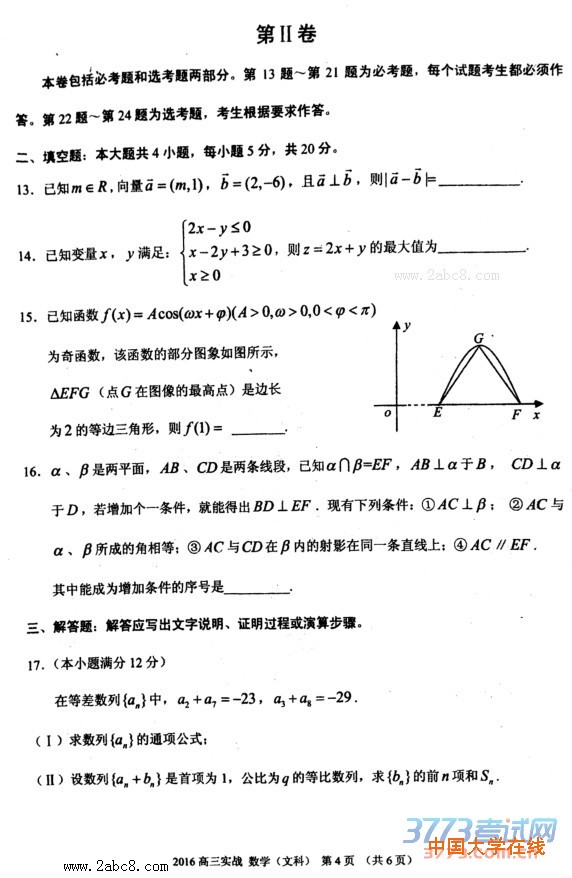 第Ⅱ卷
本卷包括必考题和选考题两部分。第 13 题～第 21 题为必考题，每个试题考生都必须作
答。第 22 题～第 24 题为选考题，考生根据要求作答。
二、填空题：本大题共 4 小题，每小题 5 分，共 20 分。
13．已知 m∈R，向量 a⃗=(m,1)，b⃗=(2,−6)，且 a⃗⊥b⃗，则|a⃗−b⃗|=________．
14．已知变量 x，y 满足：{2x−y≤0
x−2y+3≥0，则 z=2x+y 的最大值为________．
x≥0
www.2abc8.com
15．已知函数 f(x)=Acos(ωx+φ)(A>0,ω>0,0<φ<π)
为奇函数，该函数的部分图象如图所示，
ΔEFG（点 G 在图像的最高点）是边长
为 2 的等边三角形，则 f(1)= ________．
y
G
o E F x
16．α、β是两平面，AB、CD 是两条线段，已知α∩β=EF，AB⊥α于 B， CD⊥α
于 D，若增加个一条件，就能得出 BD⊥EF．现有下列条件：①AC⊥β；②AC 与
α、β所成的角相等；③AC 与 CD 在β内的射影在同一条直线上；④AC∥EF．
其中能成为增加条件的序号是________．
三、解答题：解答应写出文字说明、证明过程或演算步骤。
17．（本小题满分 12 分）
在等差数列{aₙ}中，a₂+a₇=−23，a₃+a₈=−29．
（Ⅰ）求数列{aₙ}的通项公式；
（Ⅱ）设数列{aₙ+bₙ}是首项为 1，公比为 q 的等比数列，求{bₙ}的前 n 项和 Sₙ．
3773考试网
中国大学在线
3773.com.cn
2016 高三实战 数学（文科） 第 4 页 （共 6 页）
www.2abc8.com